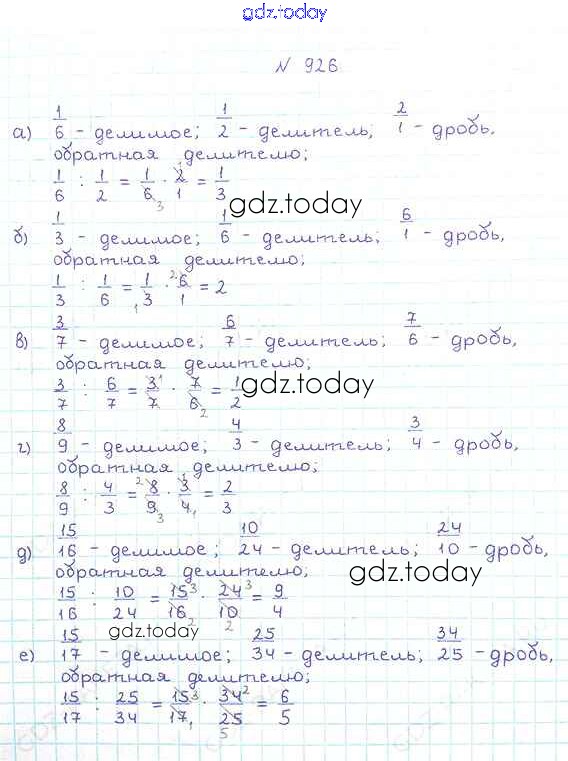 gdz.today
N 926
а) 1/6 - делимое; 1/2 - делитель; 2/1 - дробь,
обратная делителю;
1/6 : 1/2 = 1/6 3 · 2 1/1 = 1/3
gdz.today
б) 1/3 - делимое; 1/6 - делитель; 6/1 - дробь,
обратная делителю;
1/3 : 1/6 = 1/3 1 · 2 6/1 = 2
в) 3/7 - делимое; 6/7 - делитель; 7/6 - дробь,
обратная делителю;
3/7 : 6/7 = 3 1/7 · 7/6 2 = 1/2
gdz.today
г) 8/9 - делимое; 4/3 - делитель; 3/4 - дробь,
обратная делителю;
8/9 : 4/3 = 2 8/9 3 · 3/4 1 = 2/3
д) 15/16 - делимое; 10/24 - делитель; 24/10 - дробь,
обратная делителю;
15/16 : 10/24 = 15 3/16 2 · 24 3/10 2 = 9/4
gdz.today
gdz.today
е) 15/17 - делимое; 25/34 - делитель; 34/25 - дробь,
обратная делителю;
15/17 : 25/34 = 15 3/17 1 · 34 2/25 5 = 6/5